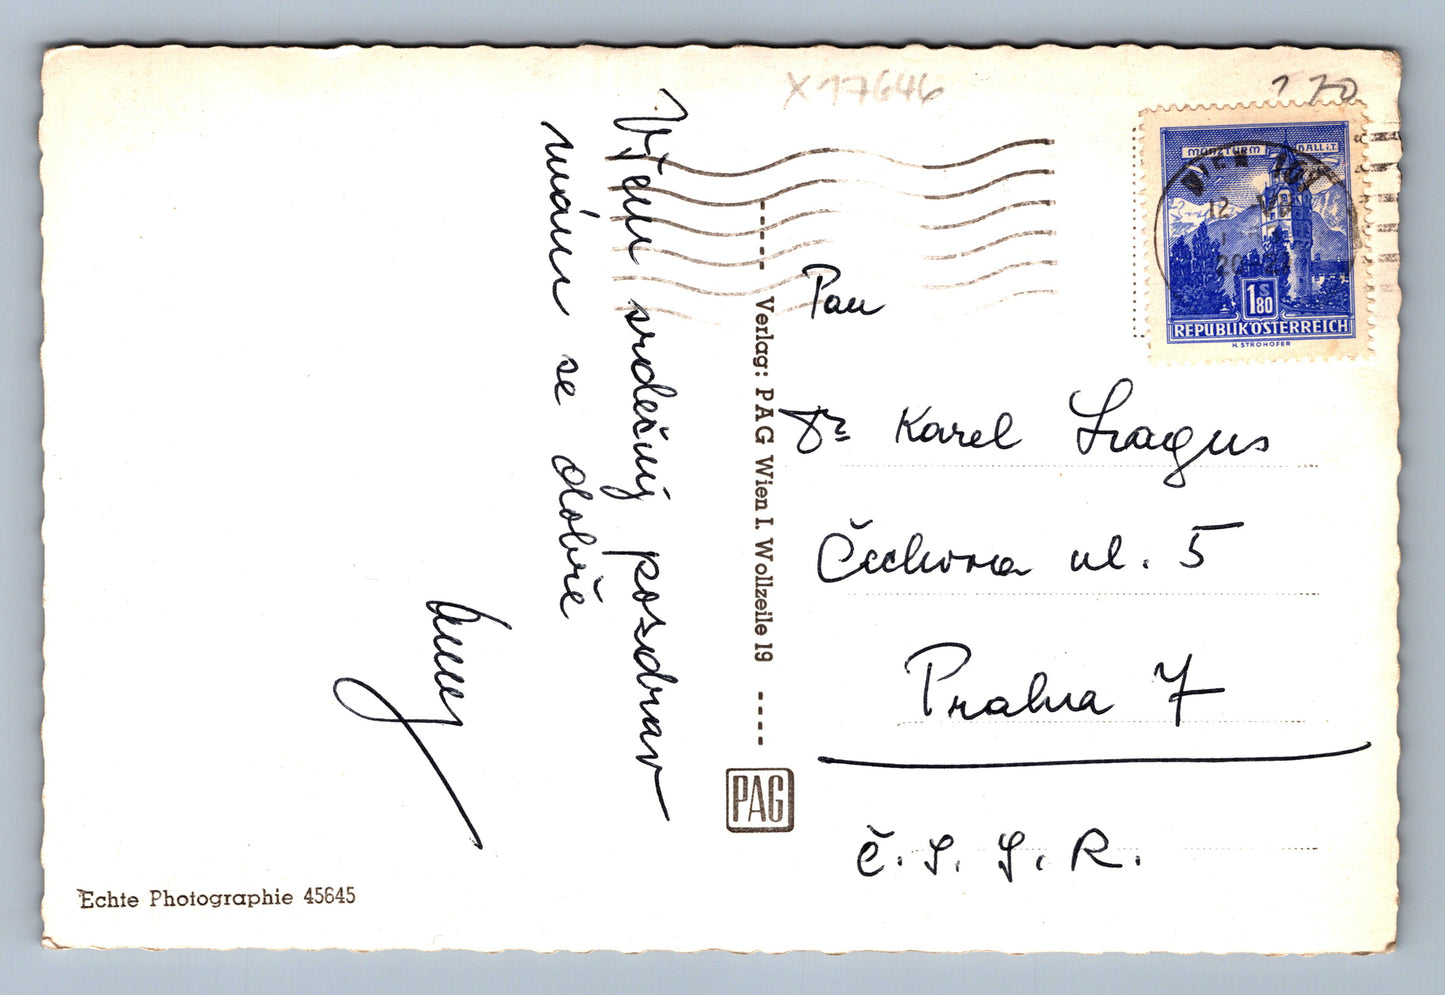 X 17646
Všem srdečný pozdrav
mám se dobře
Verlag: PAG Wien I. Wollzeile 19
PAG
Echte Photographie 45645
MÜNZTURM HALL i.T.
WIEN 101
12.
20
1 S 80
REPUBLIK ÖSTERREICH
H. STROHOFER
Pan
Dr Karel Sragus
Čechova ul. 5
Praha 7
Č. S. S. R.